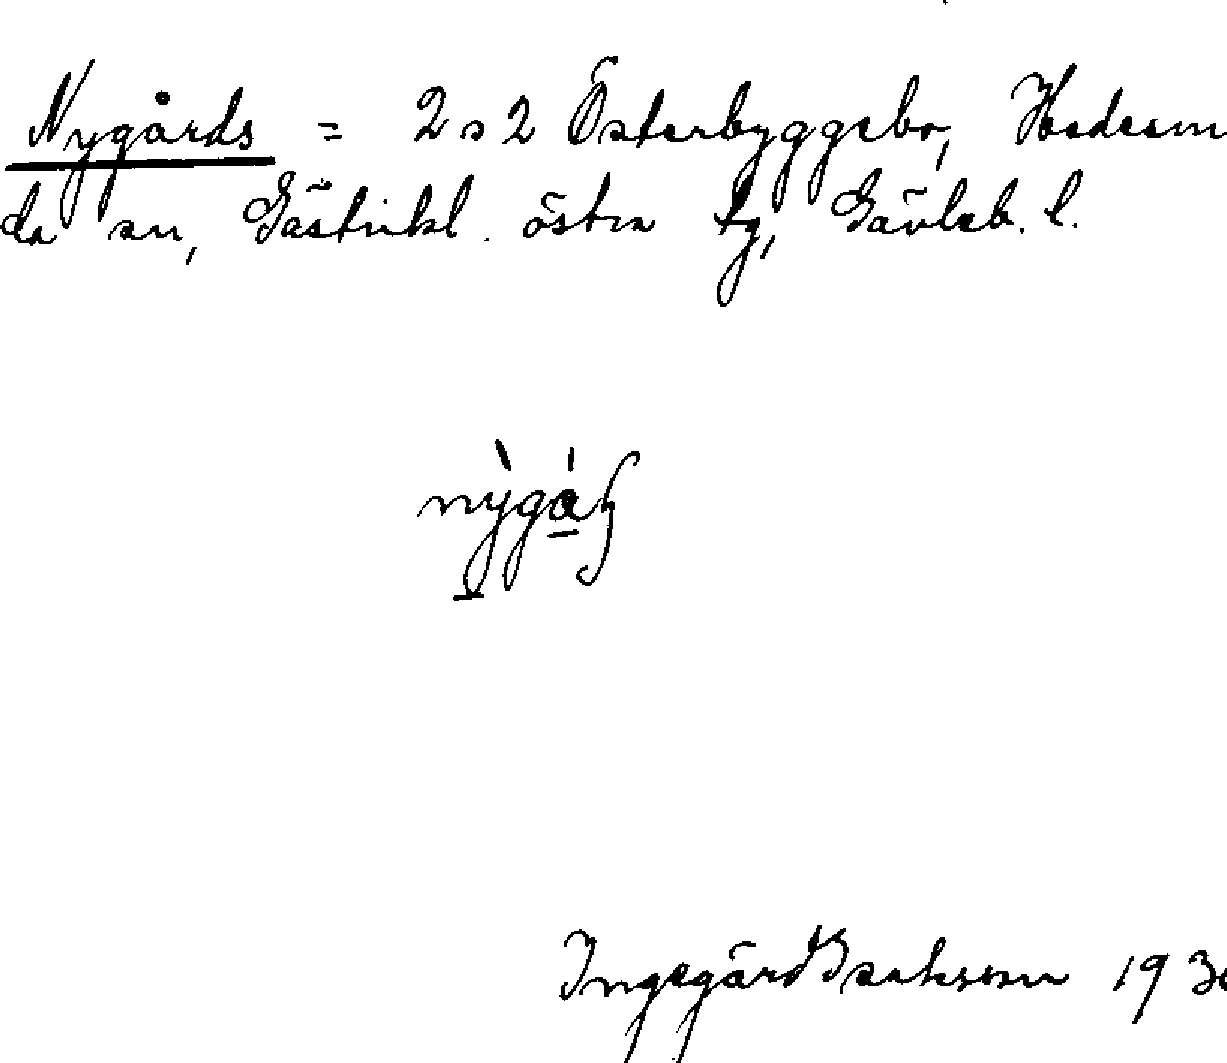 Nygårds = 2 o 2 Österbyggebo, Hedesun
da sn, Gästrikl. östra tg, Gävleb. l.
Ingegärd Isaksson 193